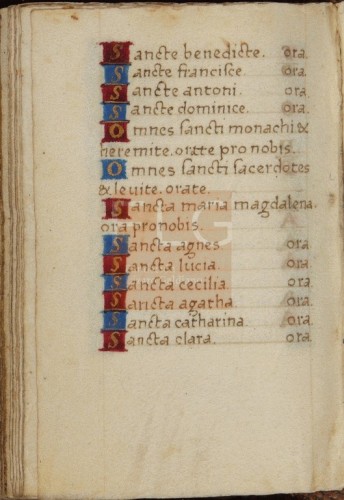 Sancte benedicte. ora.
Sancte francisce. ora.
Sancte antoni. ora
Sancte dominice. ora.
Omnes sancti monachi &
heremite. orate pro nobis.
Omnes sancti sacerdotes
& leuite. orate.
Sancta maria magdalena.
ora pro nobis.
Sancta agnes ora.
Sancta lucia. ora.
Sancta cecilia. ora.
Sancta agatha ora.
Sancta catharina. ora.
Sancta clara. ora.